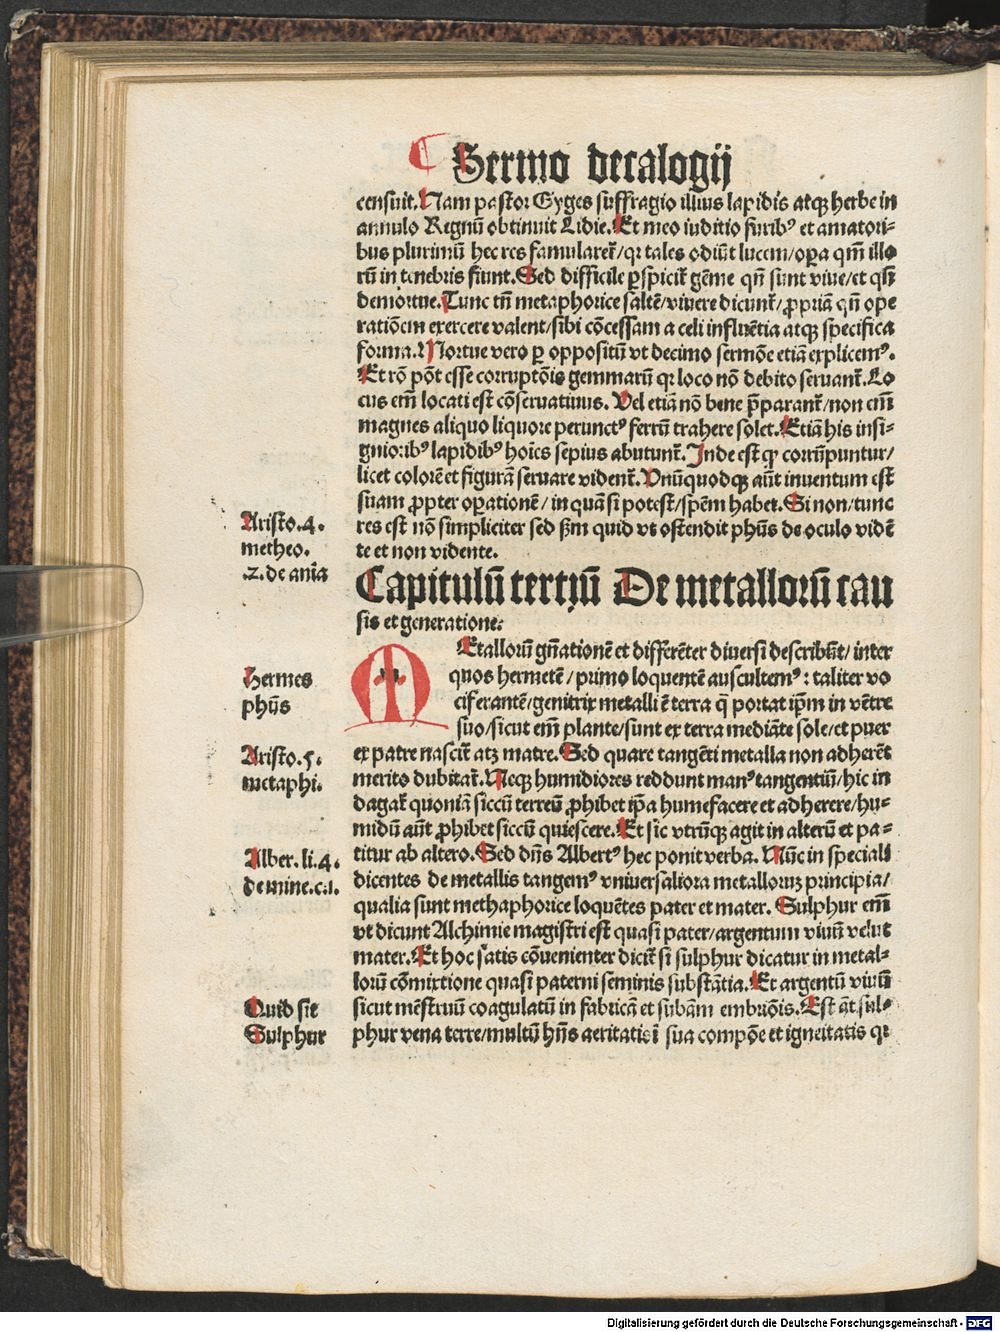 Sermo decalogij
censuit. Nam pastor Gyges suffragio illius lapidis atqꝫ herbe in
annulo Regnū obtinuit Lidie. Et meo iuditio furibꝰ et amatori⸗
bus plurimū hec res famularet̄/qꝛ tales odiūt lucem/oꝑa qm̄ illo
rū in tenebris fiunt. Sed difficile ꝑspicit̄ gēme qn̄ sunt viue/et qn̄
demortue. Tunc tn̄ metaphorice saltē/viuere dicunt̄/ꝓpriā qn̄ ope
rationem exercere valent/sibi cōcessam a celi influētia atqꝫ specifica
forma. Mortue vero ꝑ oppositū vt decimo sermōe etiā explicemꝰ.
Et rō pōt esse corruptōis gemmarū qꝛ loco nō debito seruant̄. Lo
cus em̄ locati est cōseruatiuus. Vel etiā nō bene p̄parant̄/non em̄
magnes aliquo liquore perunctꝰ ferrū trahere solet. Etiā his insi⸗
gnioribꝰ lapidibꝰ hoīes sepius abutunt̄. Inde est ꝙ corrūpuntur/
licet colorē et figurā seruare vident̄. Vnūquodqꝫ aūt inuentum est
suam ꝓpter oꝑationē/in quā si potest/spēm habet. Si non/tunc
res est nō simpliciter sed ẜm quid vt ostendit phūs de oculo vidē
te et non vidente.
Aristo.4.
metheo.
.2.de anīa
Capitulū tertiū De metallorū cau
sis et generatione.
MEtallorū gn̄ationē et differēter diuersi describūt/inter
quos hermetē/primo loquentē auscultemꝰ: taliter vo
ciferantē/genitrix metalli ē terra q̄ portat ip̄m in vētre
suo/sicut em̄ plante/sunt ex terra mediāte sole/et puer
ex patre nascit̄ atꝫ matre. Sed quare tangēti metalla non adherēt
merito dubitat̄. Neqꝫ humidiores reddunt manꝰ tangentiū/hic in
dagat̄ quoniā siccū terreū ꝓhibet ip̄a humefacere et adherere/hu⸗
midū aūt ꝓhibet siccū quiescere. Et sic vtrūqꝫ agit in alterū et pa⸗
titur ab altero. Sed dn̄s Albertꝰ hec ponit verba. Nūc in speciali
dicentes de metallis tangemꝰ vniuersaliora metalloruꝫ principia/
qualia sunt methaphorice loquētes pater et mater. Sulphur em̄
vt dicunt Alchimie magistri est quasi pater/argentum viuū velut
mater. Et hoc satis cōuenienter dicit̄ si sulphur dicatur in metal⸗
lorū cōmixtione quasi paterni seminis substātia. Et argentū viuū
sicut mēstruū coagulatū in fabricā et subām embriōis. Est āt sul⸗
phur vena terre/multū hn̄s aeritatis ī sua compōe et igneitatis qꝛ
Hermes
phūs
Aristo.5.
metaphi.
Alber. li.4.
de mine.c.1.
Quid sit
Sulphur
Digitalisierung gefördert durch die Deutsche Forschungsgemeinschaft - DFG